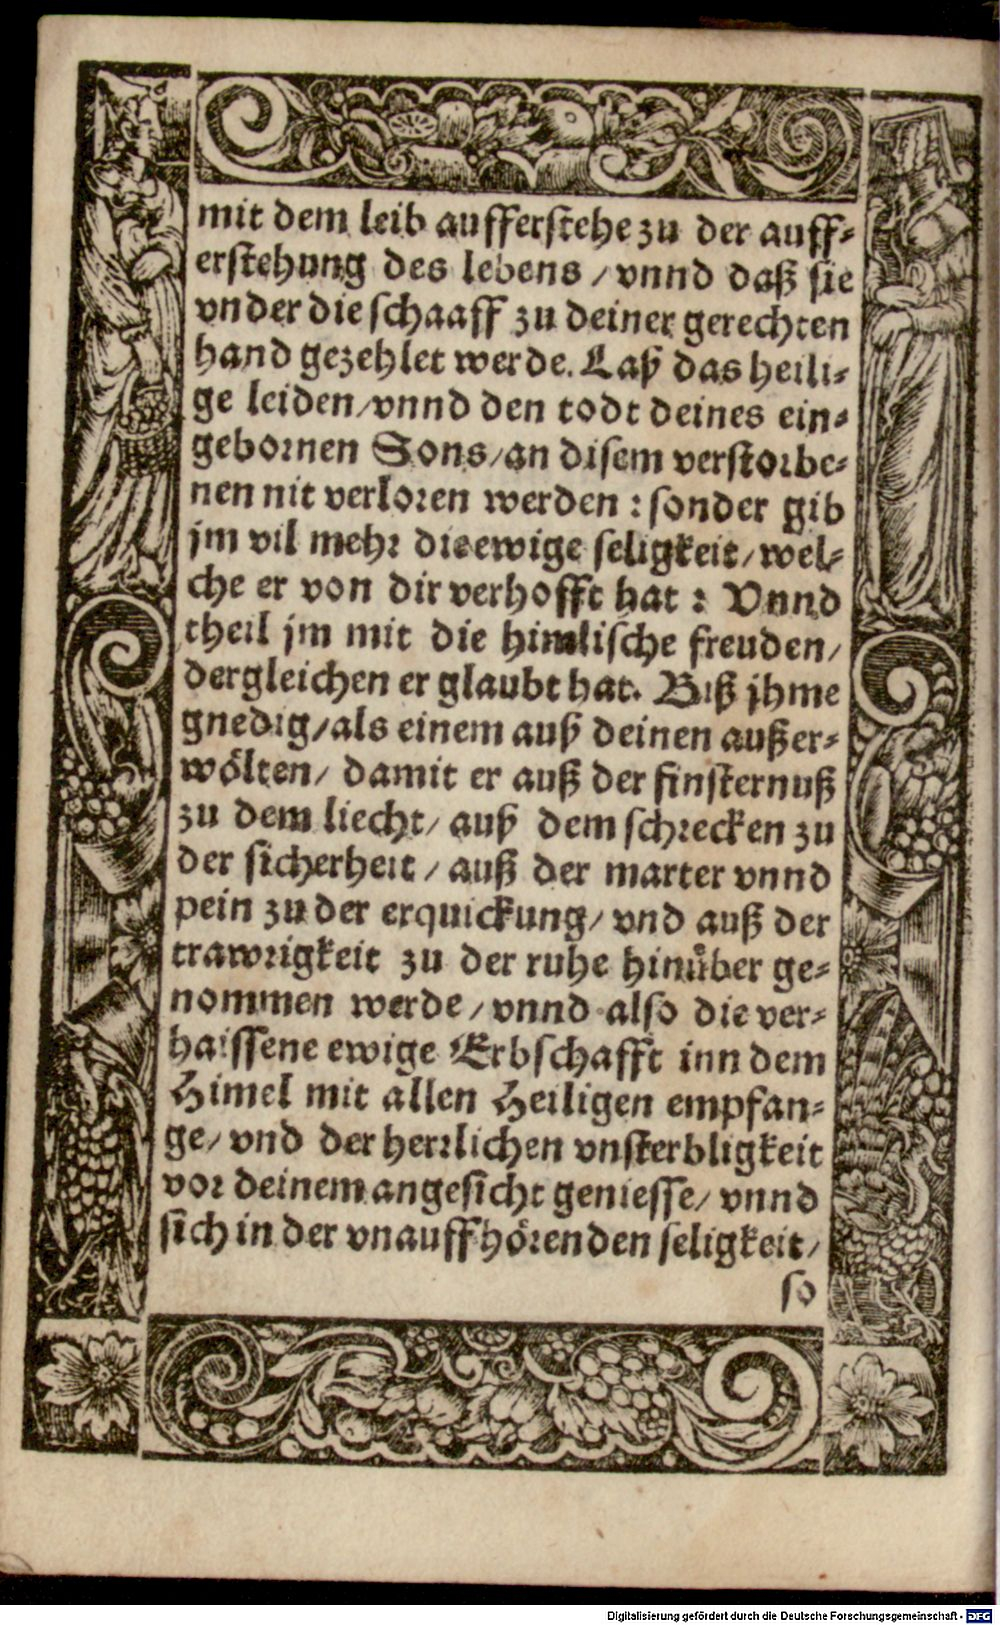 mit dem leib aufferstehe zu der auff-
erstehung des lebens / vnnd daß sie
vnder die schaaff zu deiner gerechten
hand gezehlet werde. Laß das heili-
ge leiden / vnnd den todt deines ein-
gebornen Sons / an disem verstorbe-
nen nit verloren werden : sonder gib
jm vil mehr die ewige seligkeit / wel-
che er von dir verhofft hat : Vnnd
theil jm mit die himlische freuden /
dergleichen er glaubt hat. Biß jhme
gnedig / als einem auß deinen außer-
wölten / damit er auß der finsternuß
zu dem liecht / auß dem schrecken zu
der sicherheit / auß der marter vnnd
pein zu der erquickung / vnd auß der
trawrigkeit zu der ruhe hinuͤber ge-
nommen werde / vnnd also die ver-
haissene ewige Erbschafft inn dem
Himel mit allen Heiligen empfan-
ge / vnd der herrlichen vnsterbligkeit
vor deinem angesicht geniesse / vnnd
sich in der vnauffhörenden seligkeit /
so
Digitalisierung gefördert durch die Deutsche Forschungsgemeinschaft - DFG